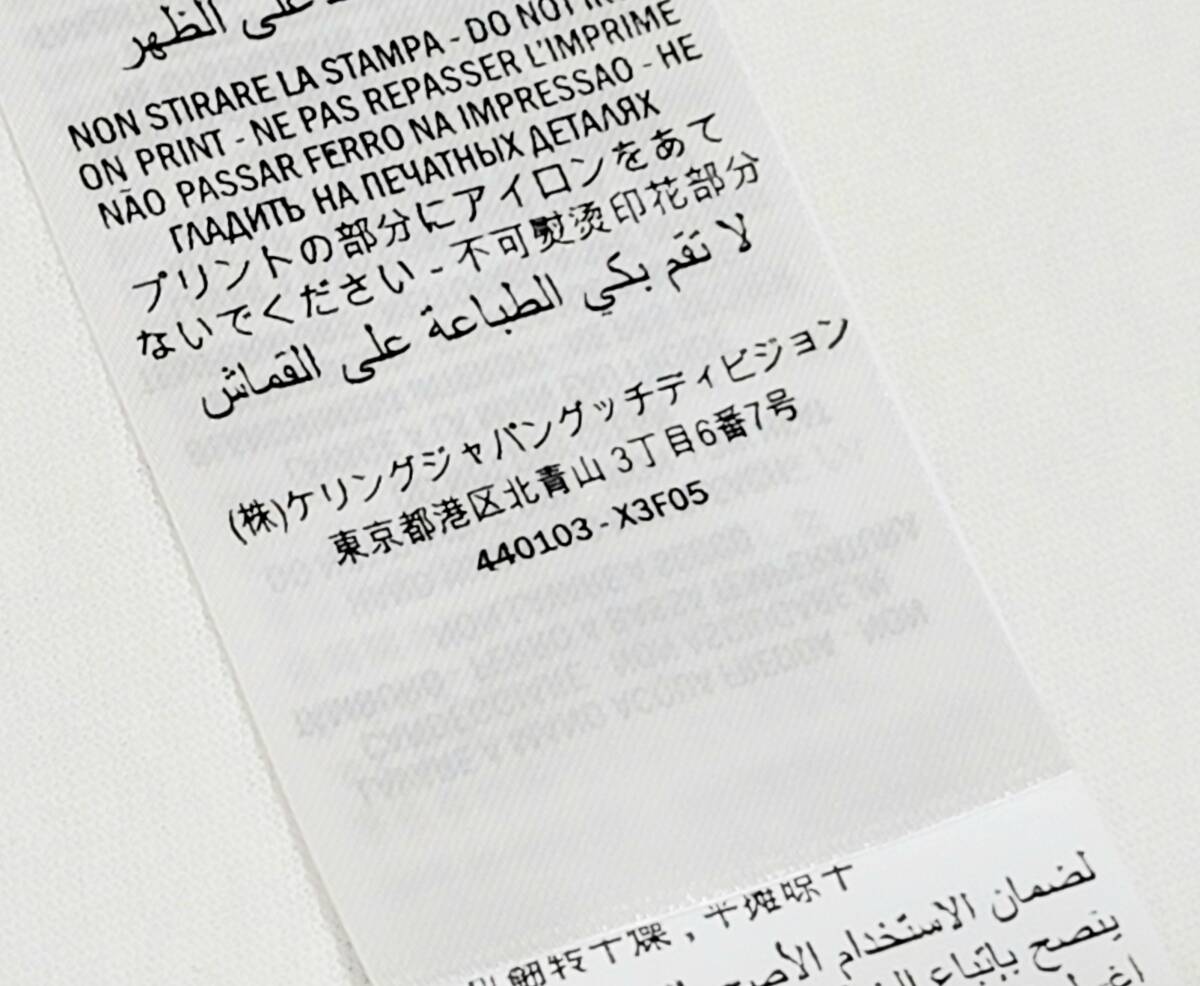 على الظهر
NON STIRARE LA STAMPA - DO NOT
ON PRINT - NE PAS REPASSER L'IMPRIME
NÃO PASSAR FERRO NA IMPRESSAO - НЕ
ГЛАДИТЬ НА ПЕЧАТНЫХ ДЕТАЛЯХ
プリントの部分にアイロンをあて
ないでください - 不可熨烫印花部分
لا تقم بكي الطباعة على القماش
(株)ケリングジャパングッチディビジョン
東京都港区北青山 3丁目6番7号
440103 - X3F05
翻转干燥，平摊晾干
لضمان الاستخدام الأصح
ينصح بإتباع